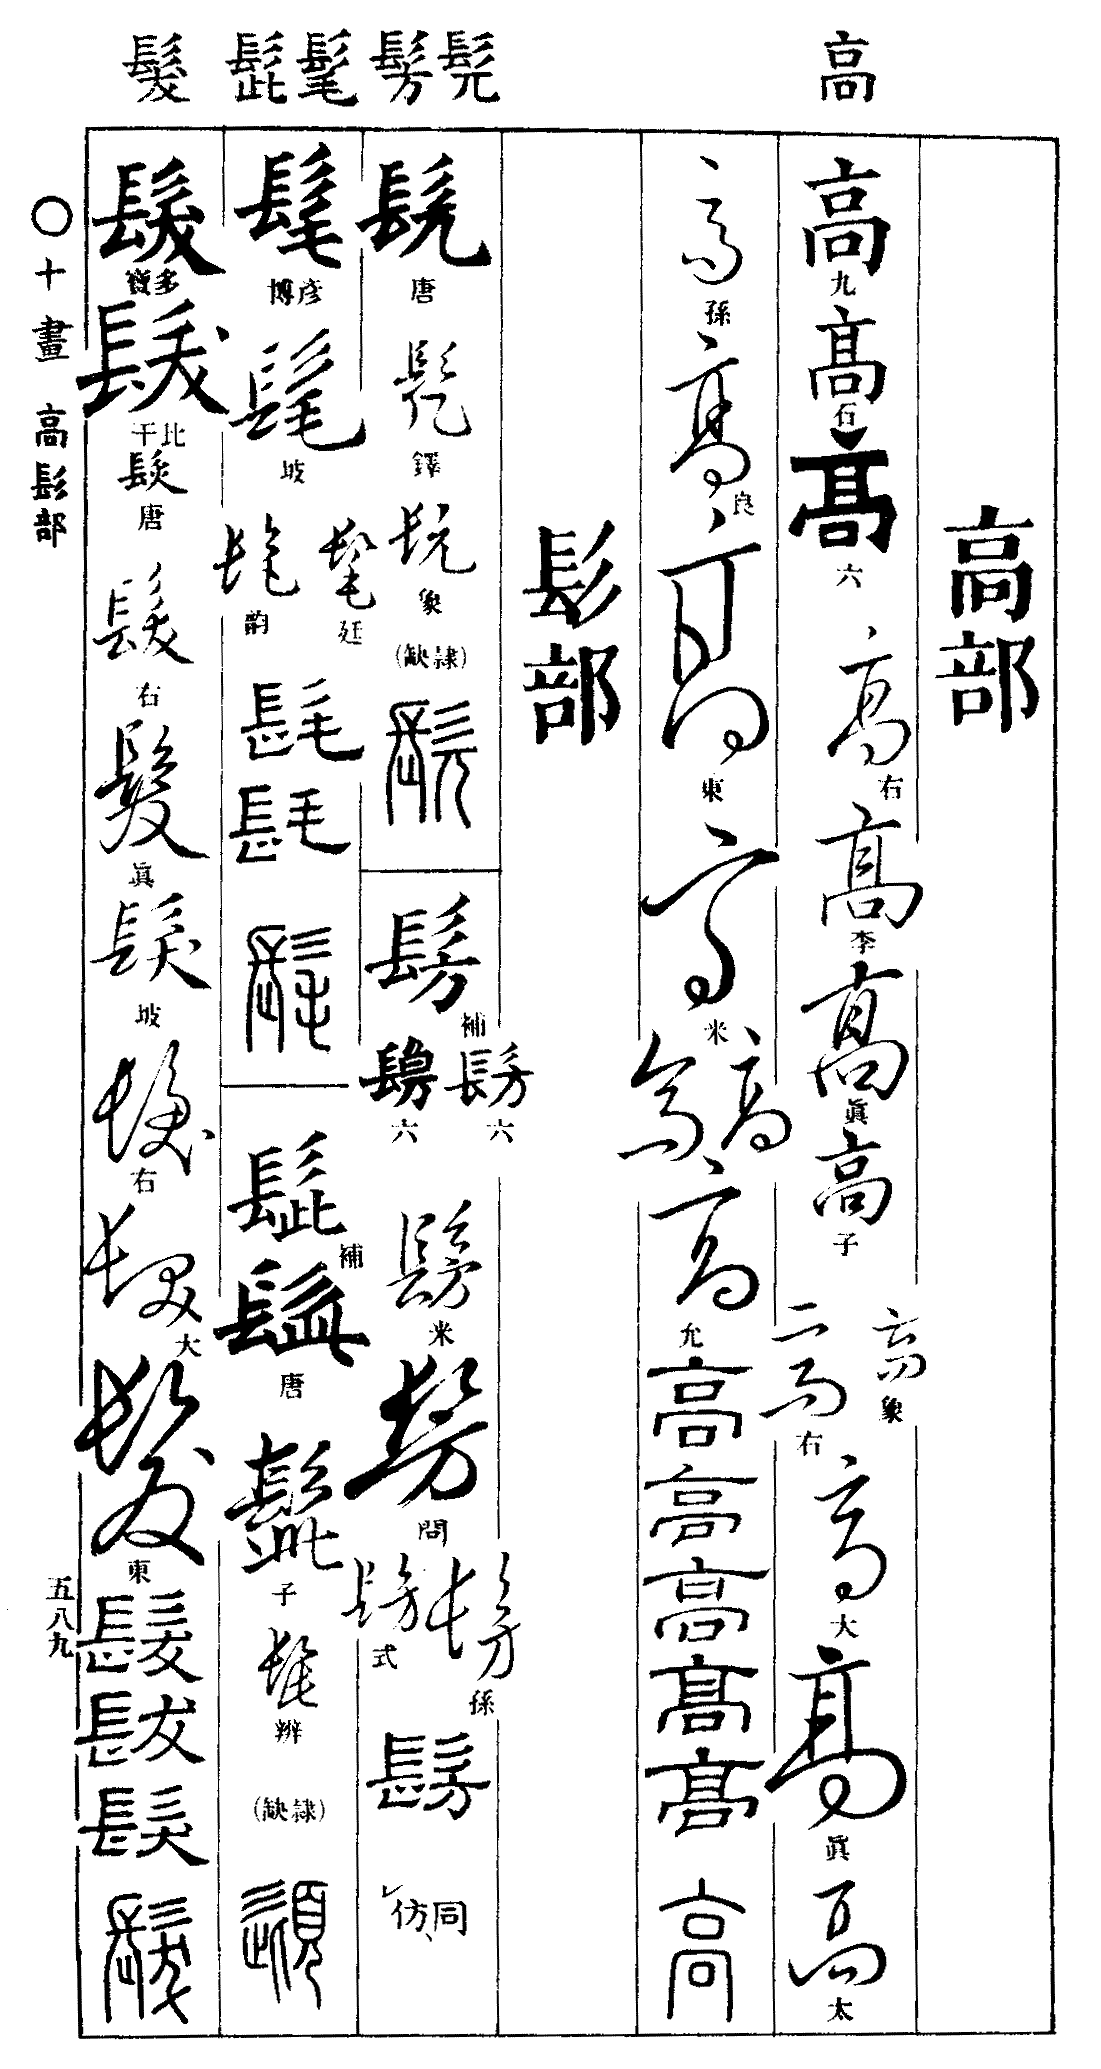 高
髡髣
髦髭
髮
高部
高
九
高
石
高
六
高
右
高
李
高
眞
高
子
高
象
高
右
高
大
高
眞
高
太
高
孫
高
良
高
東
高
米
高
高
高
允
高
高
高
高
高
高
髟部
髡
唐
髡
鐸
髡
象
(隷缺)
髡
髣
補
髣
六
髣
六
髣
米
髣
問
髣
孫
髣
式
髣
同仿
髦
彦博
髦
坡
髦
廷
髦
韵
髦
髦
髦
髭
補
髭
唐
髭
子
髭
辨
(隷缺)
髮
多寶
髮
比干
髮
唐
髮
右
髮
眞
髮
坡
髮
右
髮
大
髮
東
髮
髮
髮
髮
〇十畫 高髟部
五八九